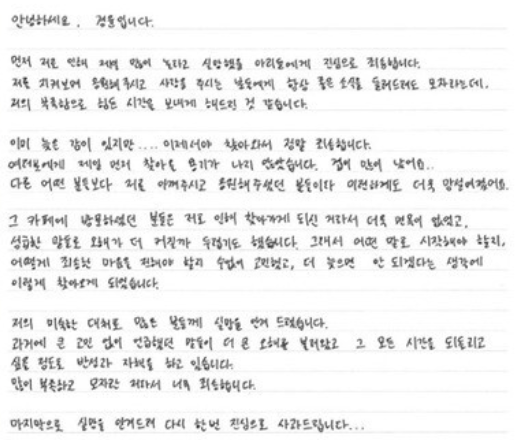 안녕하세요. 정윤입니다.
먼저 저로 인해 제일 많이 놀라고 실망했을 아리들에게 진심으로 죄송합니다.
저를 지켜보며 응원해주시고 사랑을 주시는 분들에게 항상 좋은 소식을 들려드려도 모자라는데,
저의 부족함으로 힘든 시간을 보내게 해드린 것 같습니다.
이미 늦은 감이 있지만.... 이제서야 찾아와서 정말 죄송합니다.
여러분에게 제일 먼저 찾아올 용기가 나지 않았습니다. 겁이 많이 났어요..
다른 어떤 분들보다 저를 아껴주시고 응원해주셨던 분들이라 미련하게도 더욱 망설여졌어요.
그 카페에 방문하셨던 분들은 저로 인해 찾아가게 되신 거라서 더욱 면목이 없었고,
성급한 말들로 오해가 더 커질까 두렵기도 했습니다. 그래서 어떤 말로 시작해야 할지,
어떻게 죄송한 마음을 전해야 할지 수없이 고민했고, 더 늦으면 안 되겠다는 생각에
이렇게 찾아오게 되었습니다.
저의 미숙한 대처로 많은 분들께 실망을 안겨 드렸습니다.
과거에 큰 고민 없이 언급했던 말들이 더 큰 오해를 불러왔고 그 모든 시간을 되돌리고
싶을 정도로 반성과 자책을 하고 있습니다.
많이 부족하고 모자란 저라서 너무 죄송합니다.
마지막으로 실망을 안겨드려 다시 한번 진심으로 사과드립니다...